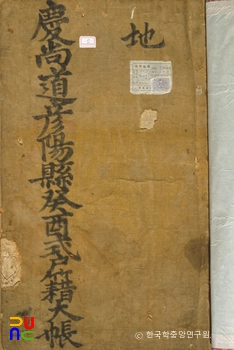 地
慶尚道彦陽縣癸酉式戶籍大帳
ⓒ 한국학중앙연구원